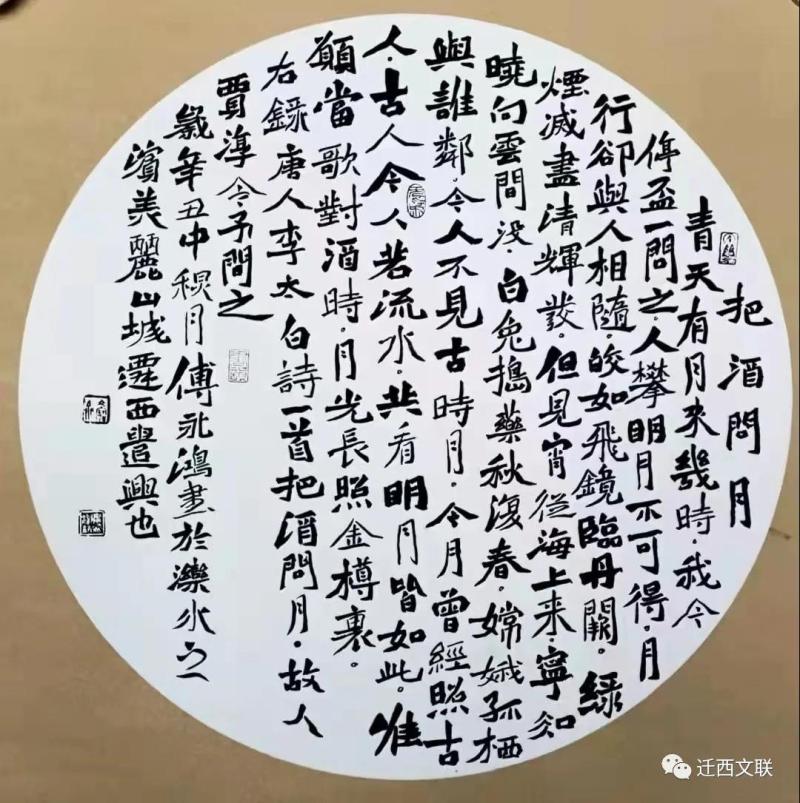 把酒問月
青天有月來幾時我今
停盃一問之人攀明月不可得月
行卻與人相隨皎如飛鏡臨丹闕緑
煙滅盡清輝發但見宵從海上来寧知
曉向雲間没白兔搗藥秋復春嫦娥孤栖
與誰鄰今人不見古時月今月曾經照古
人古人今人若流水共看明月皆如此唯
願當歌對酒時月光長照金樽裏
右録唐人李太白詩一首把酒問月故人
賈淳令予問之
歲辛丑中秋月傅永鴻書於灤水之
濱美麗山城遷西遣興也
迁西文联